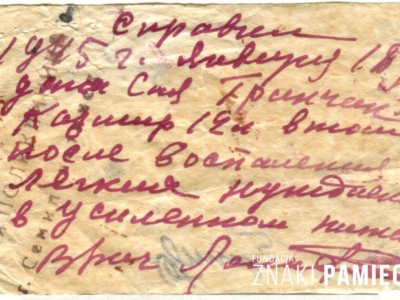 Справка
1945 г. января 18
дана сия
Казмир 12л в том
после воспаления
лёгких нуждает
в усиленном пита
Врач
FUNDACJA
ZNAKI PAMIĘC